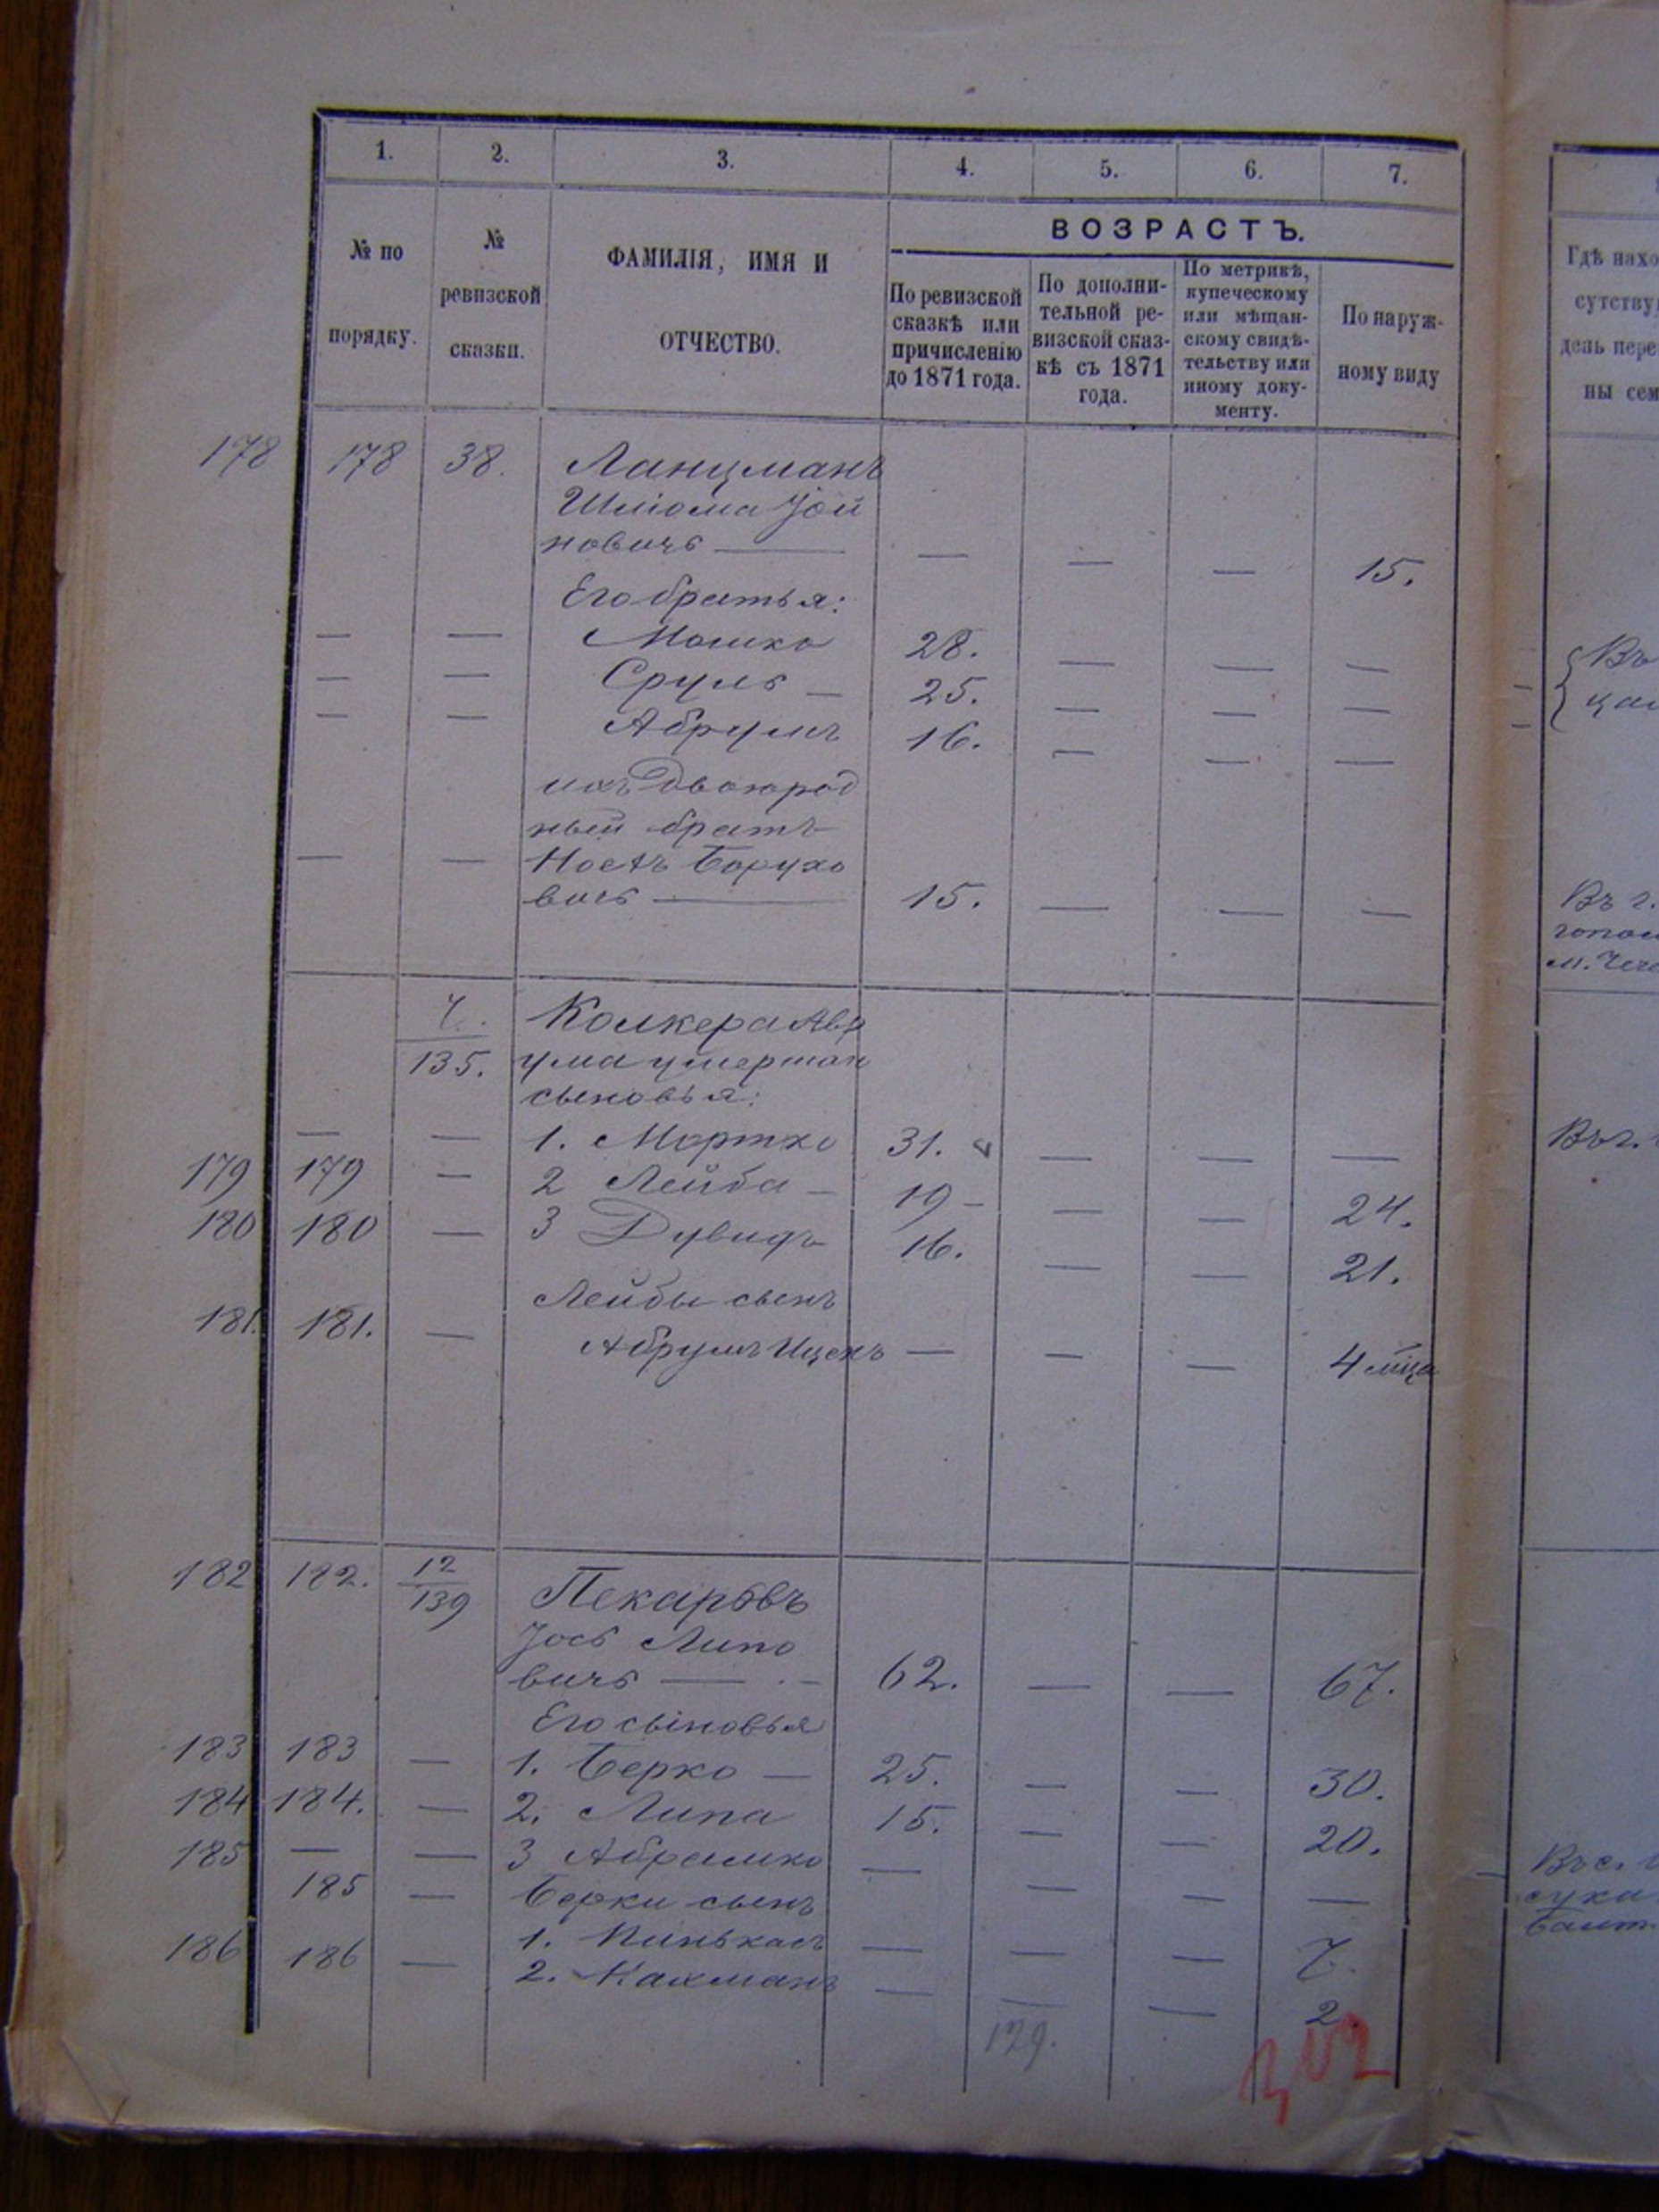 1. 2. 3. 4. 5. 6. 7.
№ по порядку.
№ ревизской сказки.
ФАМИЛІЯ, ИМЯ И ОТЧЕСТВО.
ВОЗРАСТЪ.
По ревизской сказкѣ или причисленію до 1871 года.
По дополнительной ревизской сказкѣ съ 1871 года.
По метрикѣ, купеческому или мѣщанскому свидѣтельству или иному документу.
По наружному виду
Гдѣ нахо
сутству
день пере
ны сем
178 178 38. Ланцманъ
Шліома Іой
новичъ — — — — 15.
Его братья:
— — Мошко 28. — — —
— — Сруль — 25. — — —
— — Абрумъ 16. — — —
ихъ двоюрод
ный братъ
— — Борухо
вичъ — 15. — — —
Въ
Въ г.
135. Колкера Авр
ума умершаго
сыновья:
— — 1. Мортко 31. — — —
179 179 — 2 Лейба — 19 — — — 24.
180 180 — 3 Дувидъ 16. — — 21.
Лейбы сынъ
181. 181. — Абрумъ Ицекъ — — — 4 мца
Въ г.
182 182. 12/139 Пекаровъ
Іось Липо
вичъ — 62. — — 67.
Его сыновья
183 183 — 1. Берко — 25. — — 30.
184 184. — 2. Липа 15. — — 20.
185 — — 3 Абрамко — — — —
185 — Берки сынъ
1. Пинькасъ — — — 7.
186 186 — 2. Нахманъ — — — 2.
Въ с.
129.